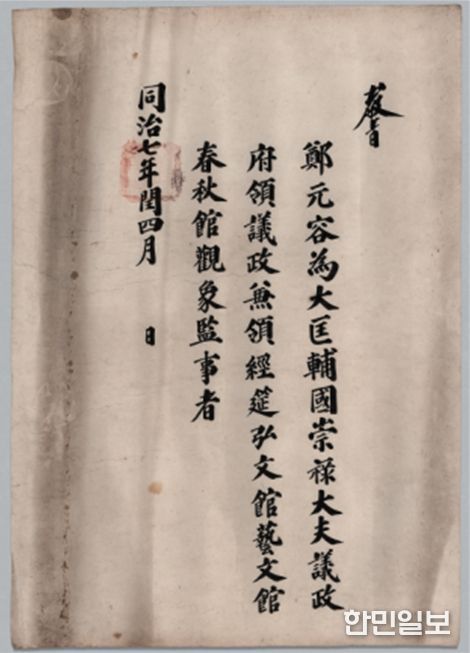 敎旨
鄭元容為大匡輔國崇祿大夫議政
府領議政兼領經筵弘文館藝文館
春秋館觀象監事者
同治七年閏四月 日
한민일보